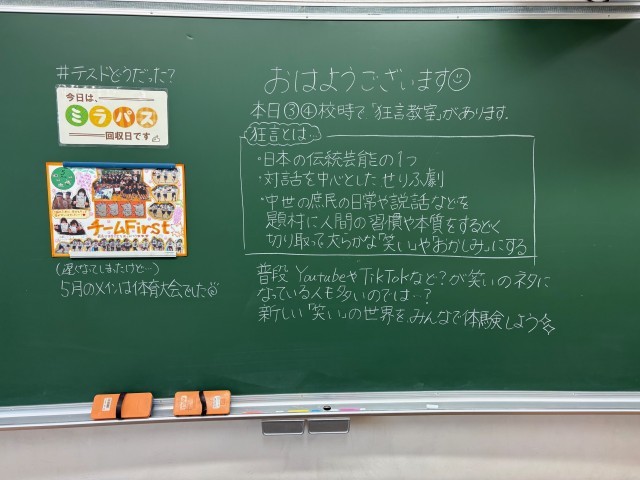 #テストどうだった?
今日は、
ミラパス
回収日です
チームFirst
(遅くなってしまったけど…)
5月のメインは体育大会でした
おはようございます
本日③④校時で「狂言教室」があります.
狂言とは…
・日本の伝統芸能の1つ
・対話を中心としたせりふ劇
・中世の庶民の日常や説話などを
題材に人間の習慣や本質をするどく
切り取って大らかな「笑い」や「おかしみ」にする
普段 YoutubeやTikTokなど?が笑いのネタに
なっている人も多いのでは…?
新しい「笑い」の世界を、みんなで体験しよう